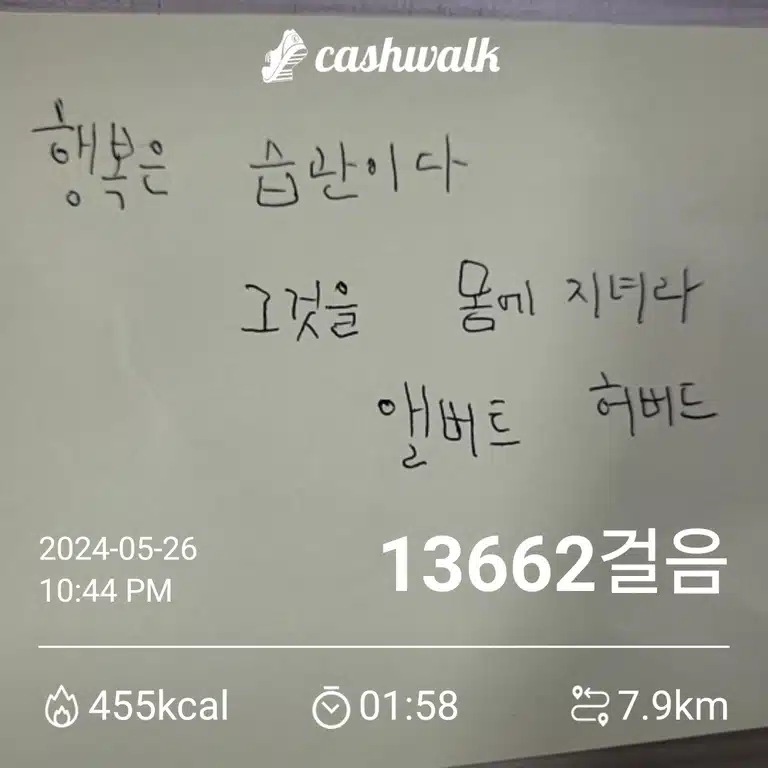 cashwalk
행복은 습관이다
그것을 몸에 지녀라
앨버트 허버드
2024-05-26
10:44 PM
13662걸음
455kcal 01:58 7.9km